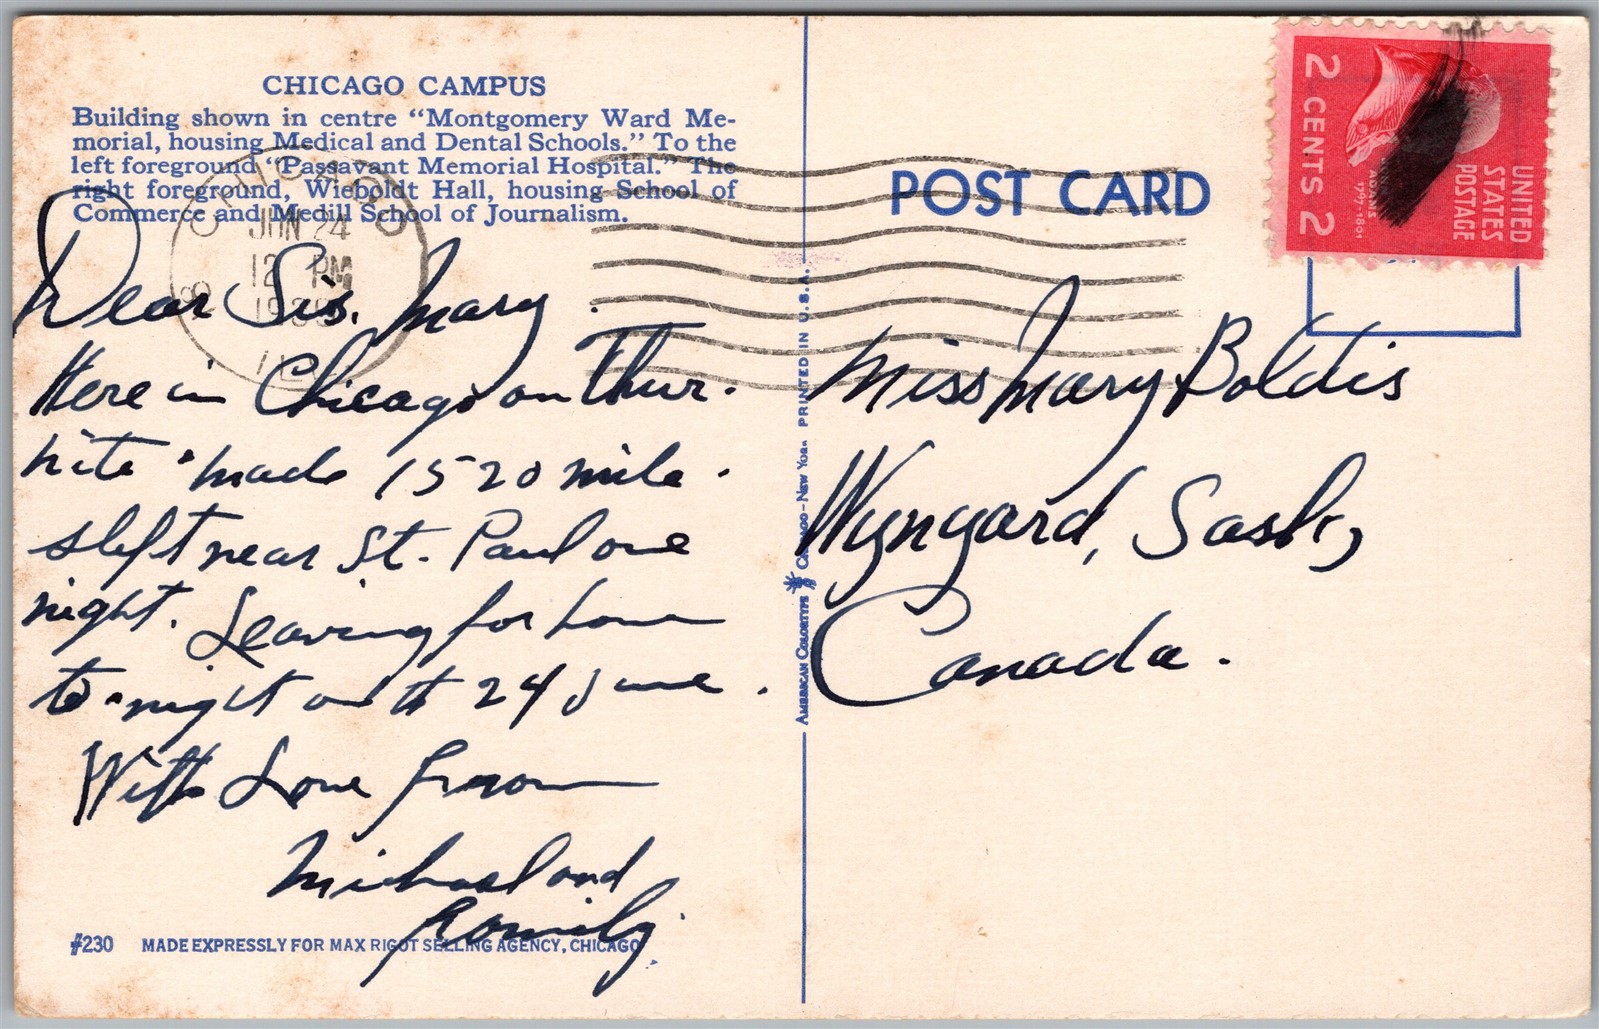 CHICAGO CAMPUS
Building shown in centre "Montgomery Ward Me-
morial, housing Medical and Dental Schools." To the
left foreground "Passavant Memorial Hospital." The
right foreground, Wieboldt Hall, housing School of
Commerce and Medill School of Journalism.
CHICAGO
JUN 24
12 PM
ILL
Dear Sis. Mary.
Here in Chicago on Thur.
nite made 1520 mile.
sleft near St. Paul one
night. Leaving for home
to-night on th 24 June.
With Love from
Michael and
#230 MADE EXPRESSLY FOR MAX RIGOT SELLING AGENCY, CHICAGO
AMERICAN COLORTYPE CHICAGO-NEW YORK PRINTED IN U.S.A.
POST CARD
UNITED
STATES
POSTAGE
ADAMS
1797-1801
2 CENTS 2
Miss Mary Boldis
Wyngard, Sask,
Canada.